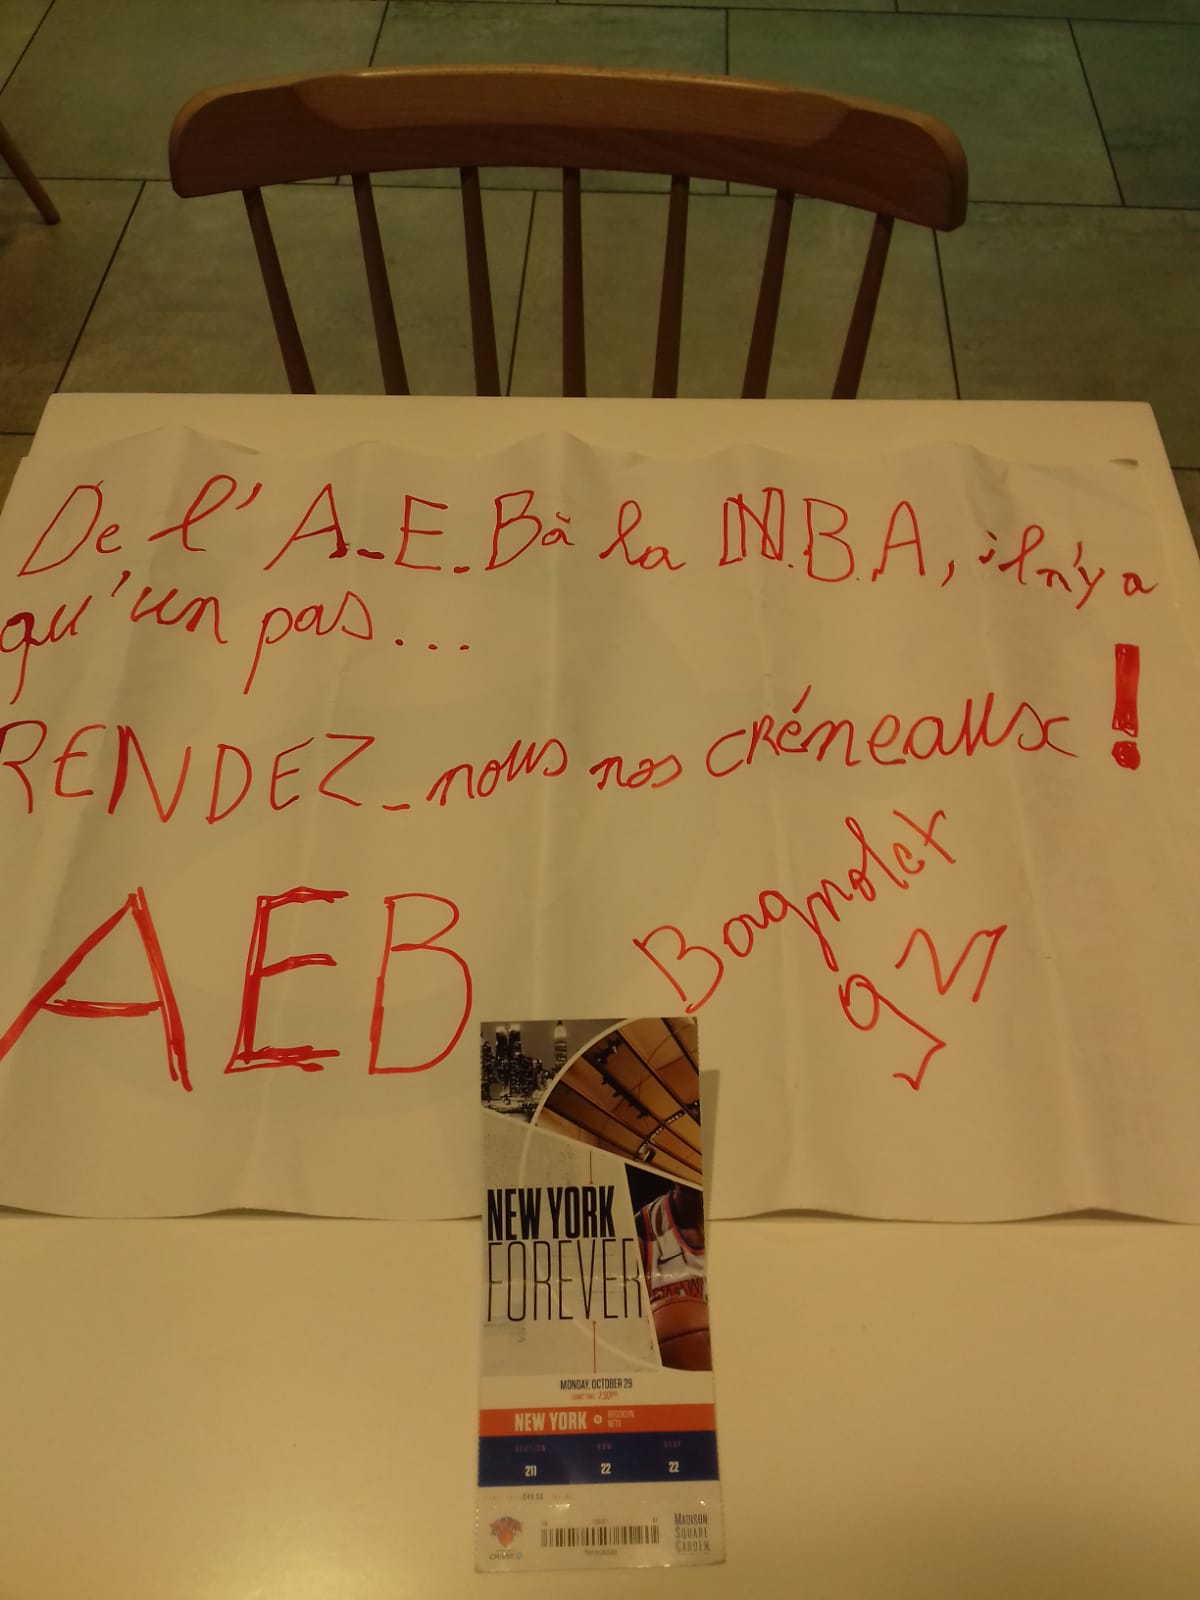 De l'A.E.B à la N.B.A, il n'y a
qu'un pas...
RENDEZ-nous nos CRÉneaux !
AEB
Bagnolet
93
NEW YORK
FOREVER
MONDAY, OCTOBER 29
GAME TIME 7:30PM
NEW YORK BROOKLYN NETS
SECTION ROW SEAT
211 22 22
CHASE
MADISON
SQUARE
GARDEN